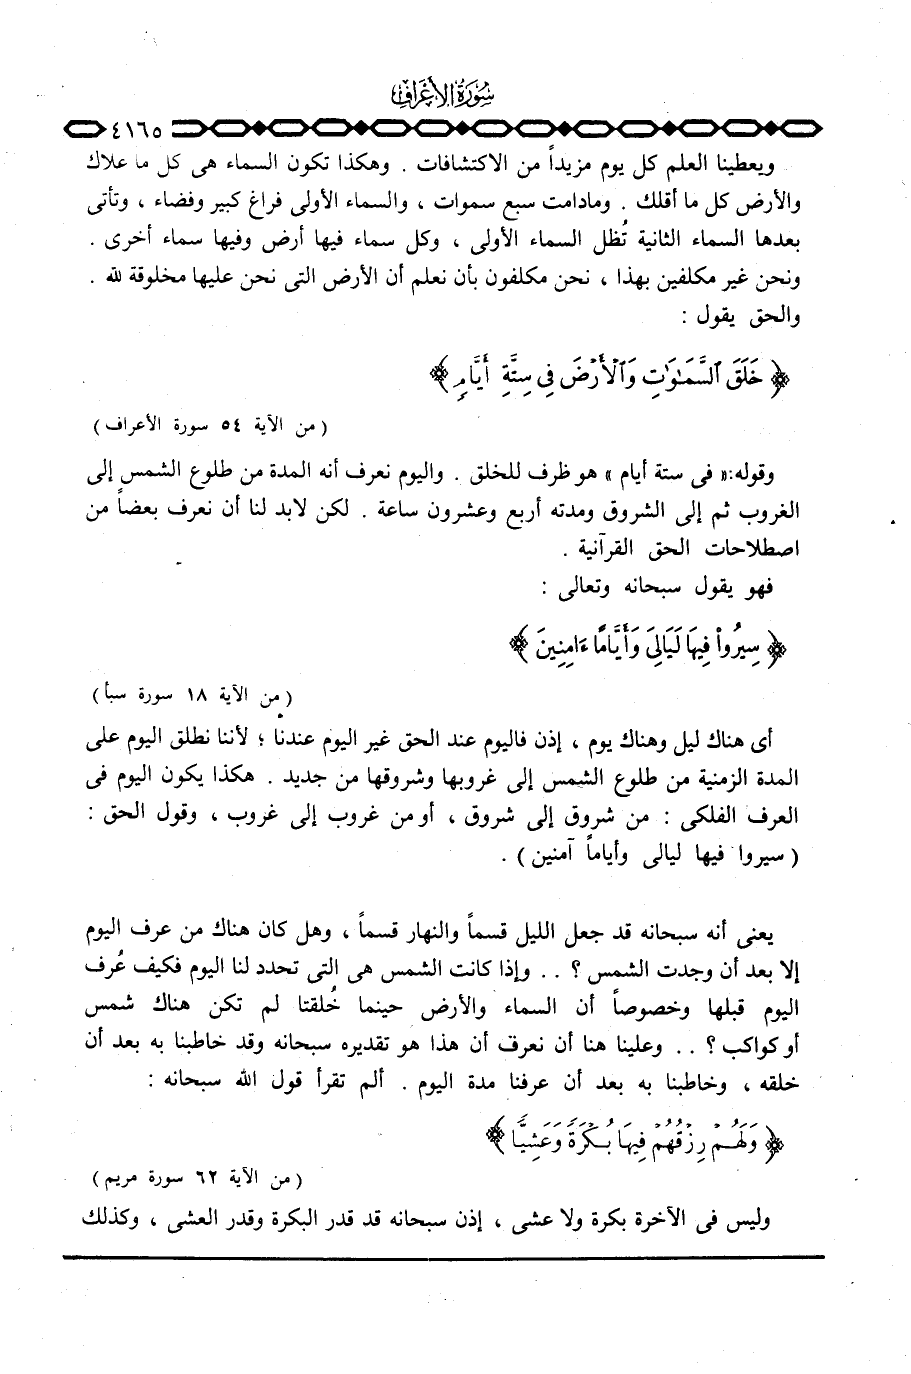 سُورَةُ الأَعْرَافِ
٤١٦٥
ويعطينا العلم كل يوم مزيداً من الاكتشافات . وهكذا تكون السماء هى كل ما علاك
والأرض كل ما أقلك . ومادامت سبع سموات ، والسماء الأولى فراغ كبير وفضاء ، وتأتى
بعدها السماء الثانية تُظل السماء الأولى ، وكل سماء فيها أرض وفيها سماء أخرى .
ونحن غير مكلفين بهذا ، نحن مكلفون بأن نعلم أن الأرض التى نحن عليها مخلوقة لله .
والحق يقول :
﴿ خَلَقَ ٱلسَّمَٰوَٰتِ وَٱلْأَرْضَ فِى سِتَّةِ أَيَّامٍ ﴾
( من الآية ٥٤ سورة الأعراف )
وقوله:« فى ستة أيام » هو ظرف للخلق . واليوم نعرف أنه المدة من طلوع الشمس إلى
الغروب ثم إلى الشروق ومدته أربع وعشرون ساعة . لكن لابد لنا أن نعرف بعضاً من
اصطلاحات الحق القرآنية .
فهو يقول سبحانه وتعالى :
﴿ سِيرُواْ فِيهَا لَيَالِىَ وَأَيَّامًا ءَامِنِينَ ﴾
( من الآية ١٨ سورة سبأ )
أى هناك ليل وهناك يوم ، إذن فاليوم عند الحق غير اليوم عندنا ؛ لأننا نطلق اليوم على
المدة الزمنية من طلوع الشمس إلى غروبها وشروقها من جديد . هكذا يكون اليوم فى
العرف الفلكى : من شروق إلى شروق ، أو من غروب إلى غروب ، وقول الحق :
( سيروا فيها ليالى وأياماً آمنين ) .
يعنى أنه سبحانه قد جعل الليل قسماً والنهار قسماً ، وهل كان هناك من عرف اليوم
إلا بعد أن وجدت الشمس ؟ . . وإذا كانت الشمس هى التى تحدد لنا اليوم فكيف عُرف
اليوم قبلها وخصوصاً أن السماء والأرض حينما خُلقتا لم تكن هناك شمس
أو كواكب ؟ . . وعلينا هنا أن نعرف أن هذا هو تقديره سبحانه وقد خاطبنا به بعد أن
خلقه ، وخاطبنا به بعد أن عرفنا مدة اليوم . ألم تقرأ قول الله سبحانه :
﴿ وَلَهُمْ رِزْقُهُمْ فِيهَا بُكْرَةً وَعَشِيًّا ﴾
( من الآية ٦٢ سورة مريم )
وليس فى الآخرة بكرة ولا عشى ، إذن سبحانه قد قدر البكرة وقدر العشى ، وكذلك